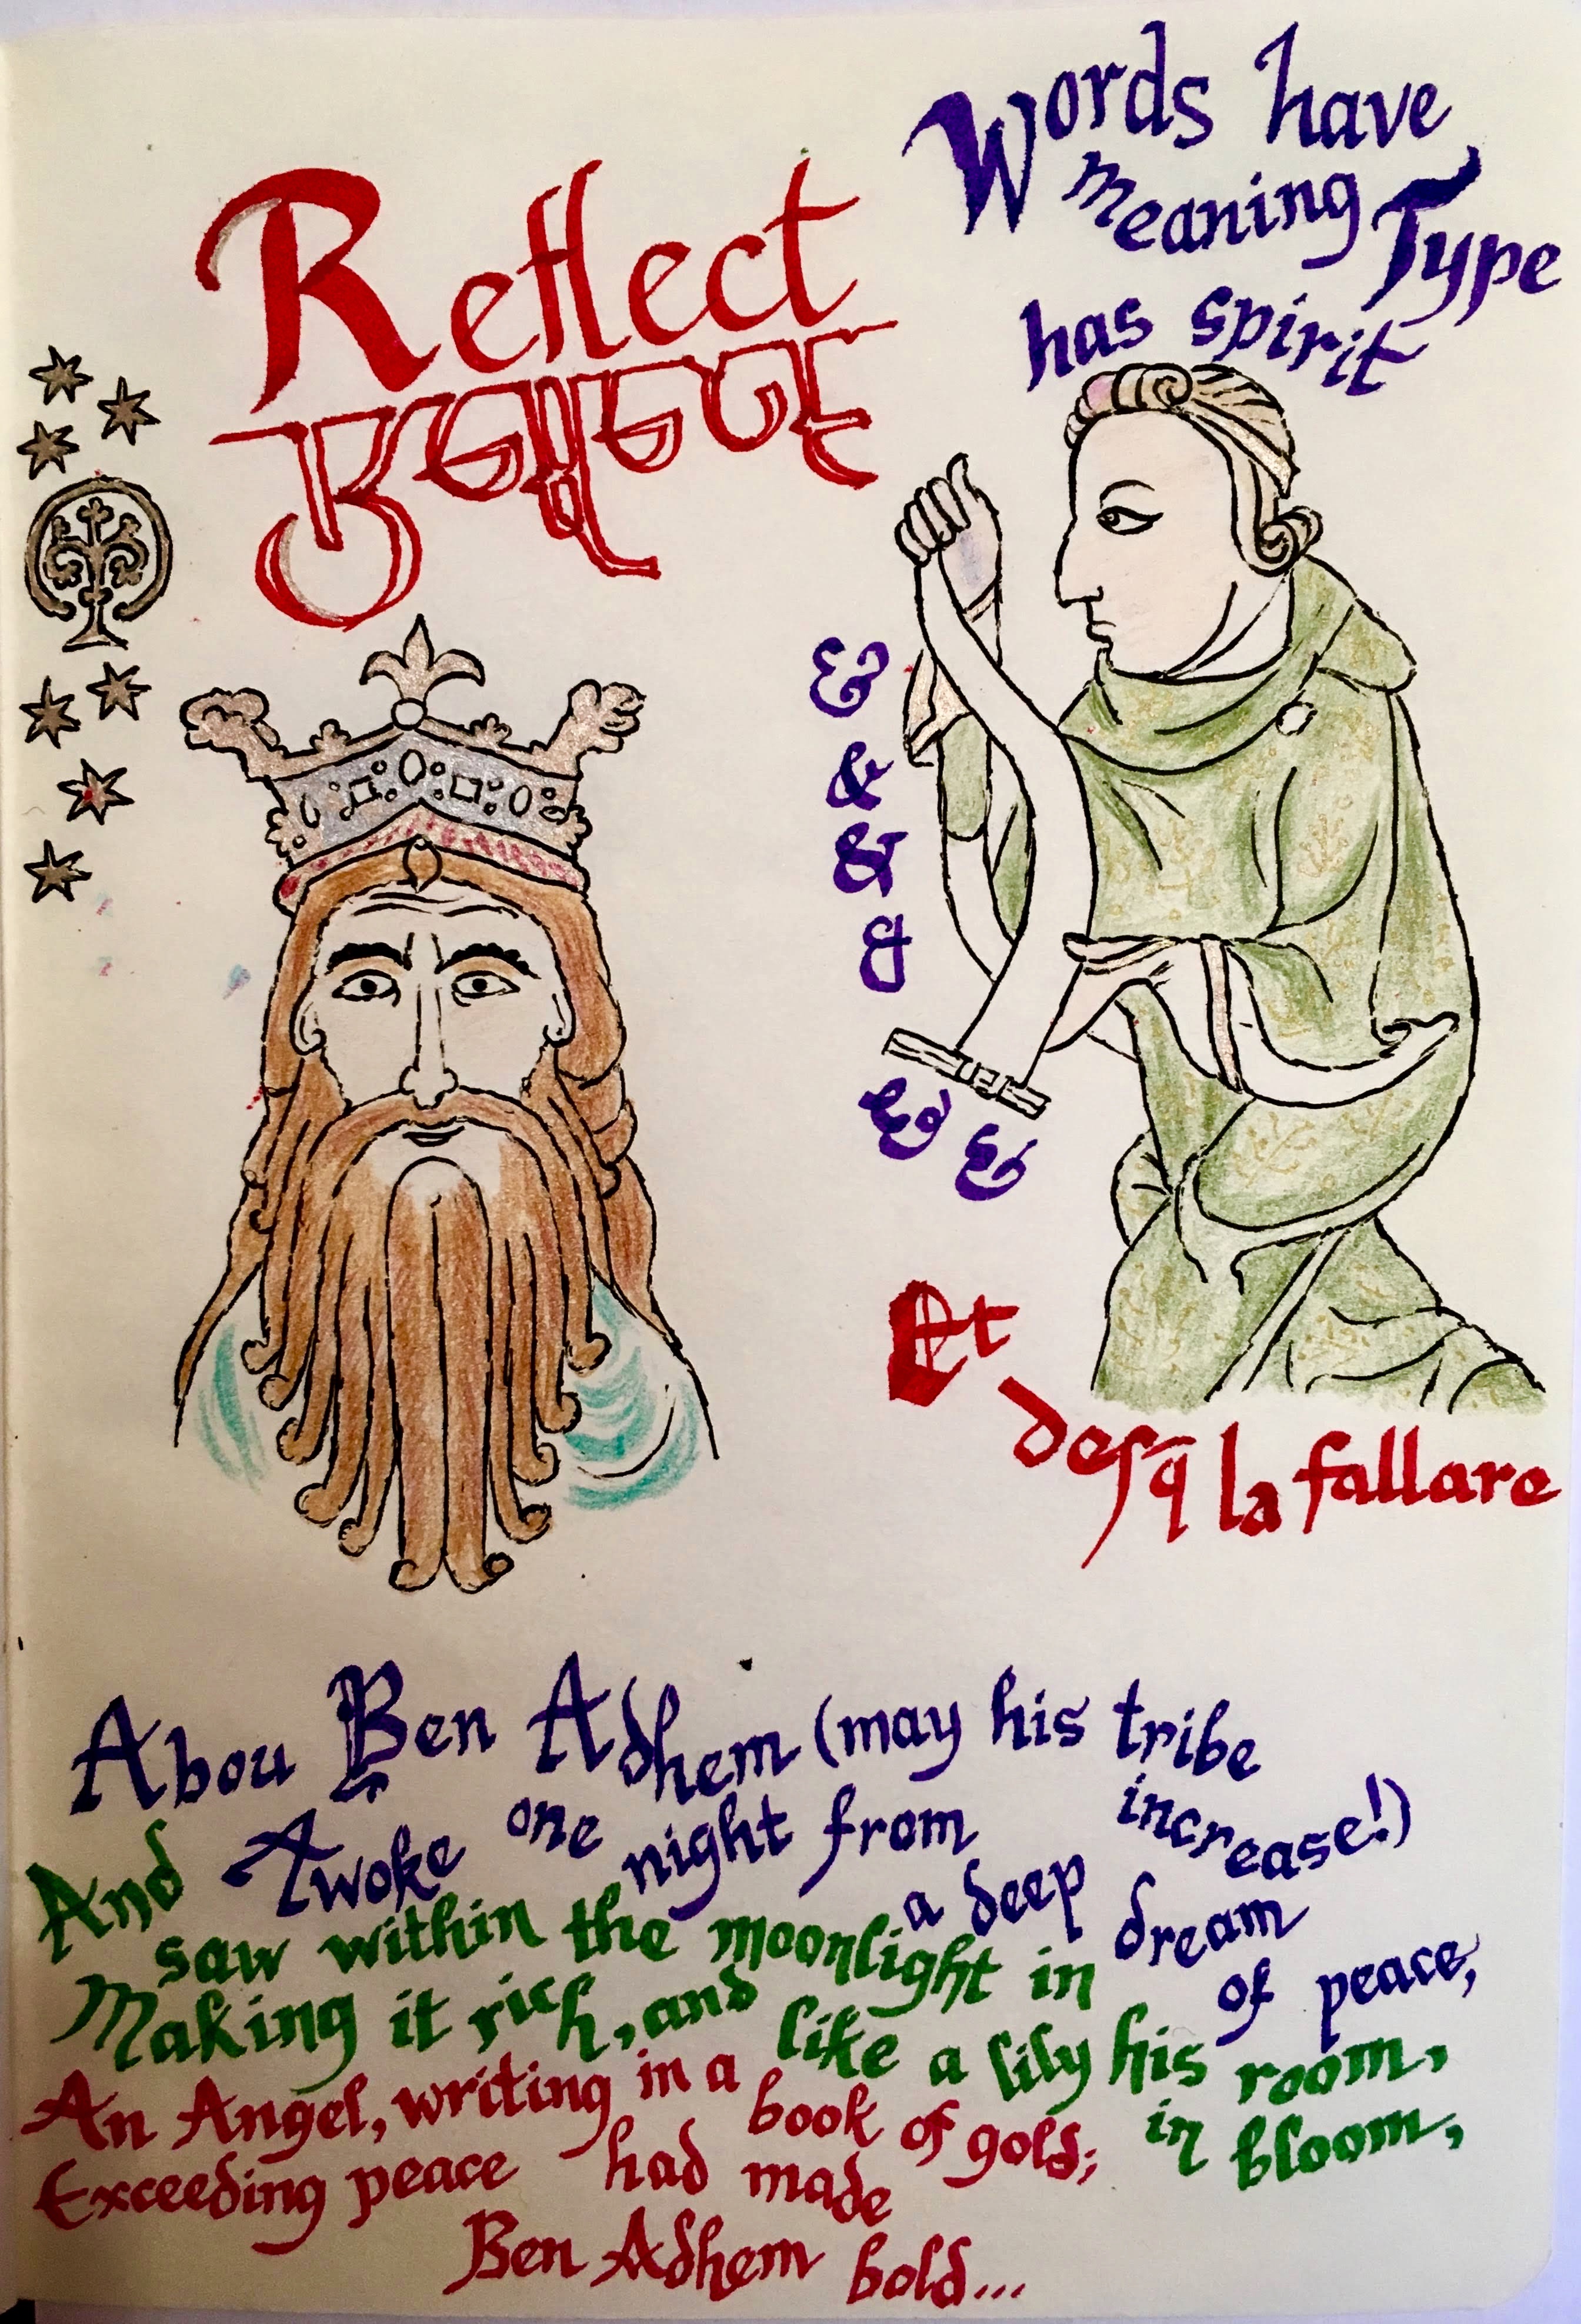 Reflect
Words have
meaning Type
has spirit
&
&
&
&
& &
Et
desq la fallare
Abou Ben Adhem (may his tribe
increase!)
Awoke one night from
a deep dream
of peace,
And
saw within the moonlight in
his room,
Making it rich, and like a lily
in bloom,
An Angel, writing in a book of gold;
Exceeding peace had made
Ben Adhem bold...